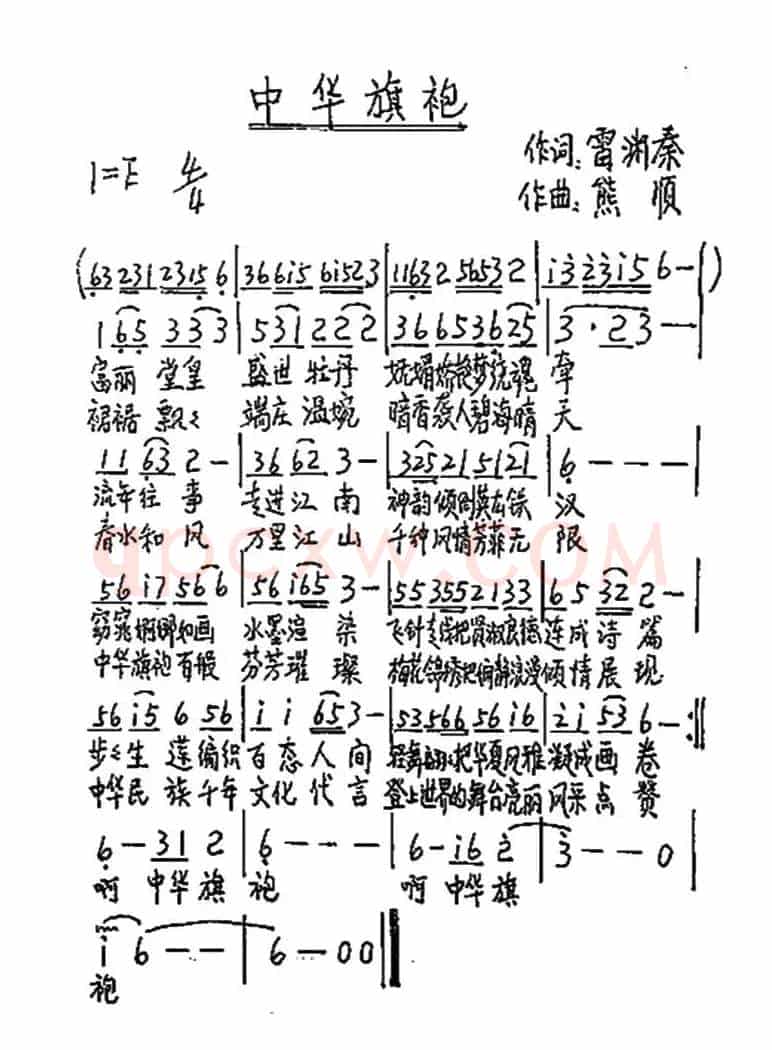 中华旗袍
作词:雷渊秦
1=F 4/4
作曲:熊顺
(63 231 2315 6|36 6i5 6i52 3|1163 2 5653 2|i3 23i5 6-|)
1 65 3 3 3|5 31 2 2 2|36 653625|3·2 3-|
富丽 堂皇 盛世 牡丹 妩媚娇艳梦绕魂 牵
裙裾 飘飘 端庄 温婉 暗香袭人碧海晴 天
11 63 2-|36 62 3-|325 21 51 21|6---|
流年往 事 走进江 南 神韵倾
春水和 风 万里江 山 千种风情芳菲无 限
56 i7 56 6|56 i65 3-|553552133|65 32 2-|
窈窕 如画 水墨渲 染 飞针走线把贤淑良德连成诗 篇
中华旗袍百般 芬芳璀 璨 梅花锦绣把 静浪漫倾情展 现
56 i5 6 56|i i 65 3-|53566 56 i6|2i 53 6-:||
步步生 莲编织 百态人 间 轻舞 把华夏风雅凝成画 卷
中华民 族千年 文化代 言 登上世界的舞台亮丽风采点 赞
6-31 2|6---|6-i6 2|3--0|
啊 中华旗 袍 啊 中华旗
i 6--|6-00||
袍
qpcxw.COM